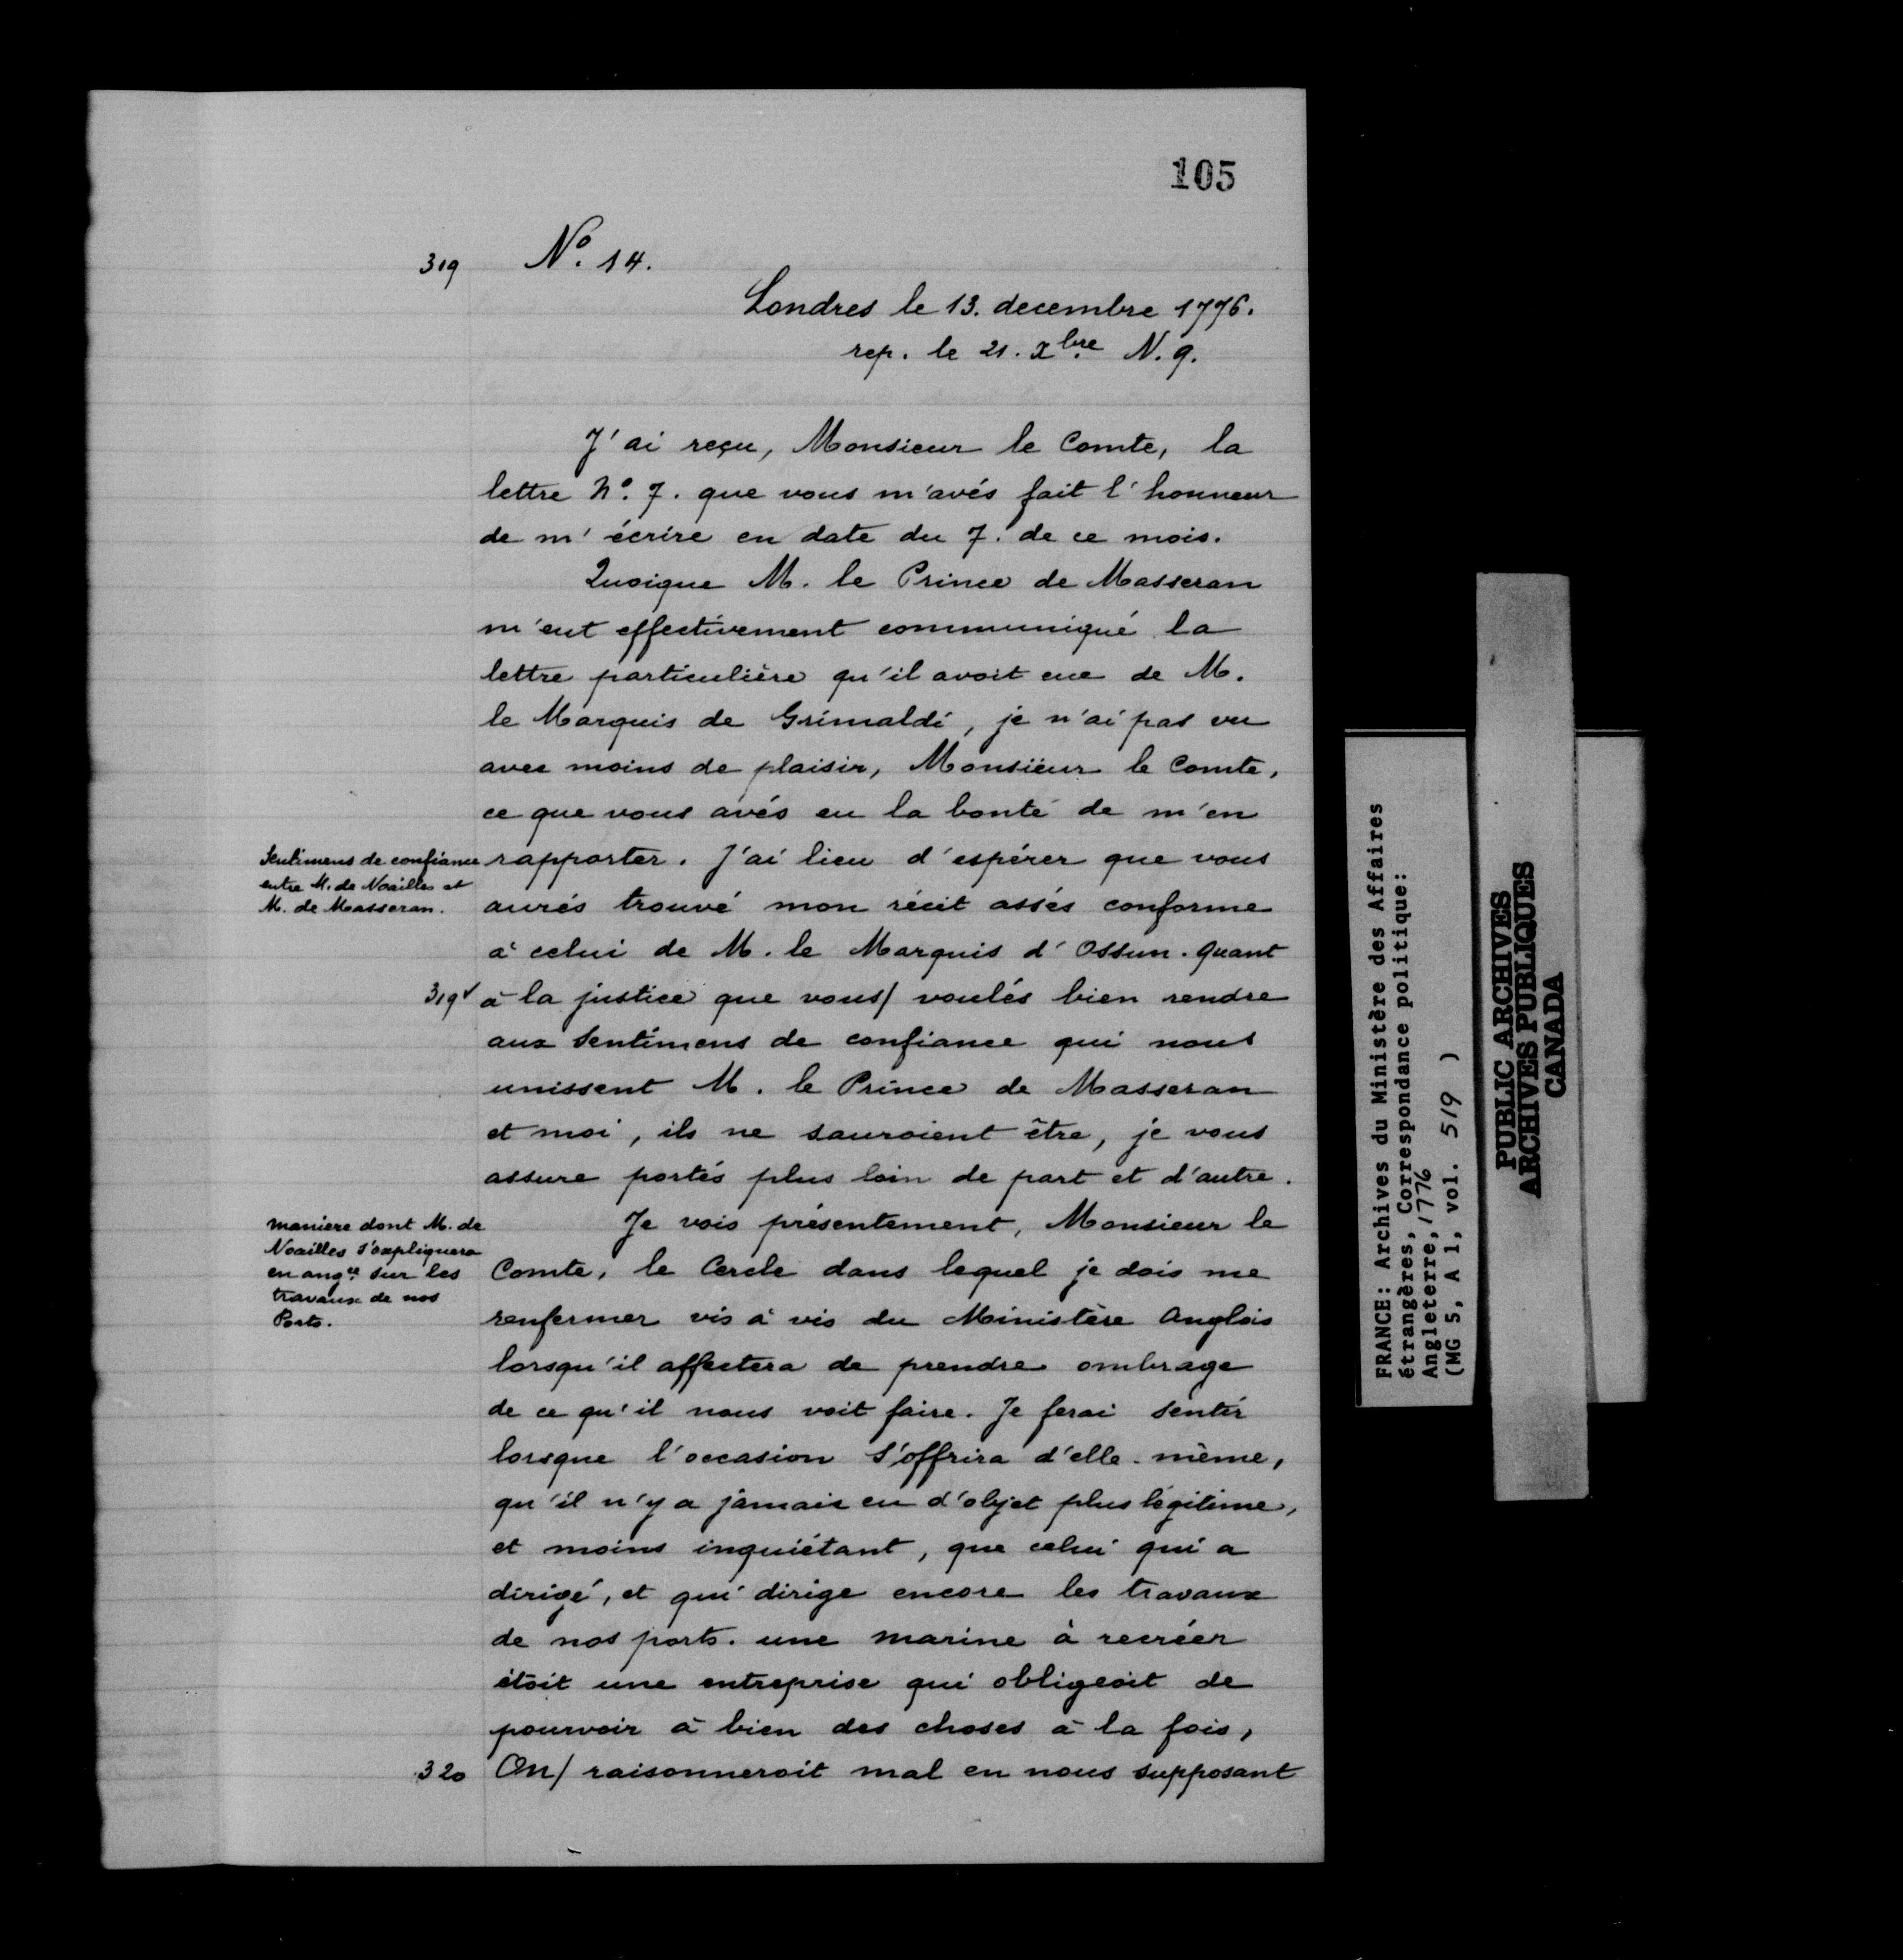 105
319 Nº. 14.
Londres le 13. decembre 1776.
rep. le 21. Xbre N. 9.
J'ai reçu, Monsieur le Comte, la
lettre Nº. 7. que vous m'avés fait l'honneur
de m'écrire en date du 7. de ce mois.
Quoique M. le Prince de Masseran
m'eut effectivement communiqué la
lettre particulière qu'il avoit eue de M.
le Marquis de Grimaldi, je n'ai pas vu
avec moins de plaisir, Monsieur le Comte,
ce que vous avés eu la bonté de m'en
Sentimens de confiance
entre M. de Noailles et
M. de Masseran.
rapporter. J'ai lieu d'espérer que vous
aurés trouvé mon récit assés conforme
à celui de M. le Marquis d'Ossun. Quant
319v à la justice que vous/ voulés bien rendre
aux Sentimens de confiance qui nous
unissent M. le Prince de Masseran
et moi, ils ne sauroient être, je vous
assure portés plus loin de part et d'autre.
maniere dont M. de
Noailles s'expliquera
en angre sur les
travaux de nos
Ports.
Je vois présentement, Monsieur le
Comte, le Cercle dans lequel je dois me
renfermer vis à vis du Ministère Anglois
lorsqu'il affectera de prendre ombrage
de ce qu'il nous voit faire. Je ferai sentir
lorsque l'occasion s'offrira d'elle-même,
qu'il n'y a jamais eu d'objet plus légitime,
et moins inquiétant, que celui qui a
dirigé, et qui dirige encore les travaux
de nos ports. une marine à recréer
étoit une entreprise qui obligeoit de
pourvoir à bien des choses à la fois,
320 On/ raisonneroit mal en nous supposant
FRANCE: Archives du Ministère des Affaires
étrangères, Correspondance politique:
Angleterre, 1776
(MG 5, A 1, vol. 519 )
PUBLIC ARCHIVES
ARCHIVES PUBLIQUES
CANADA